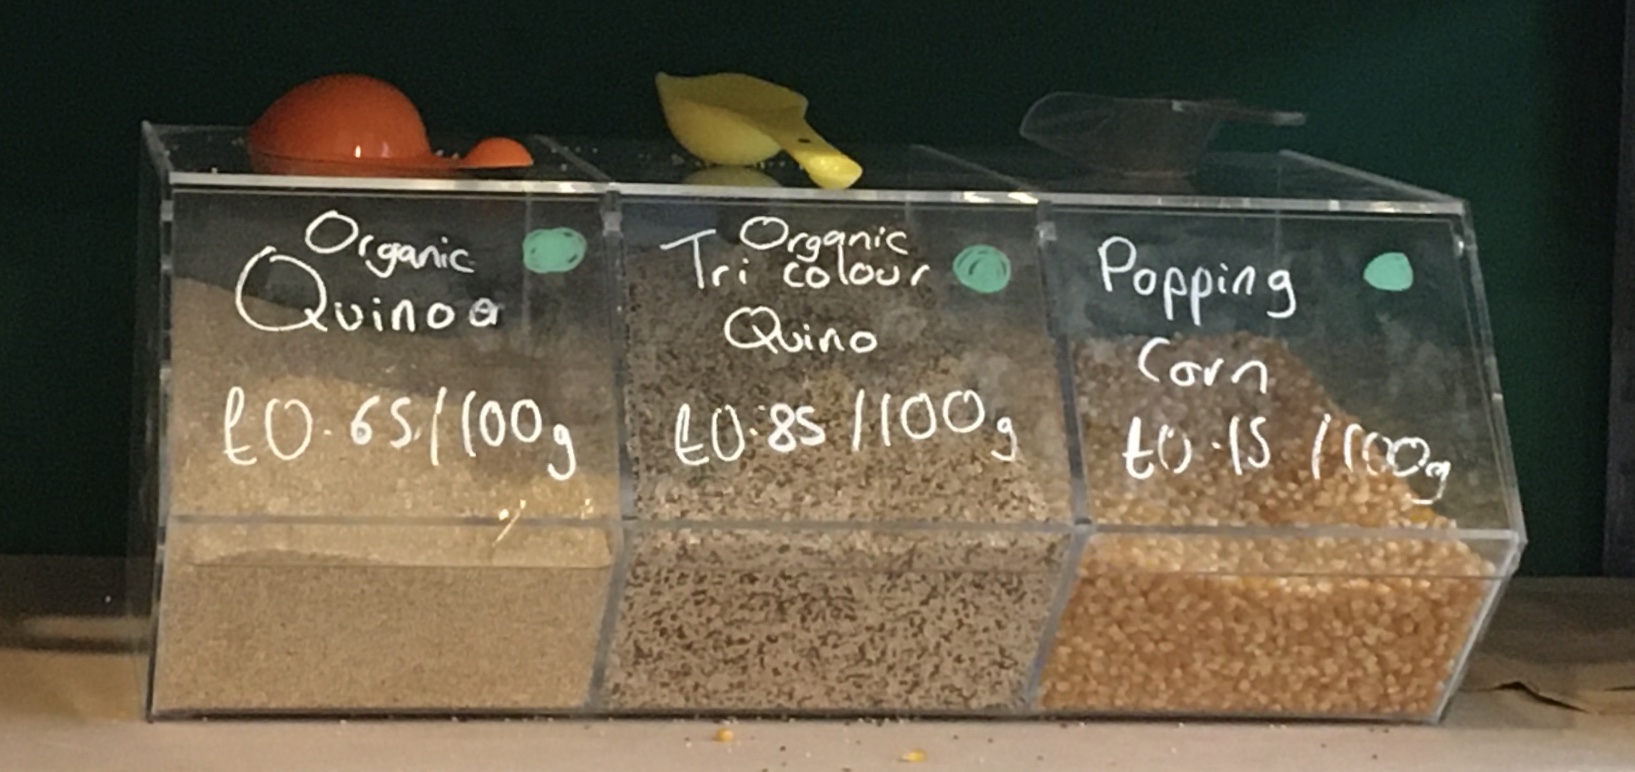 Organic
Quinoa
£0.65/100g
Organic
Tri colour
Quino
£0.85/100g
Popping
Corn
£0.15/100g